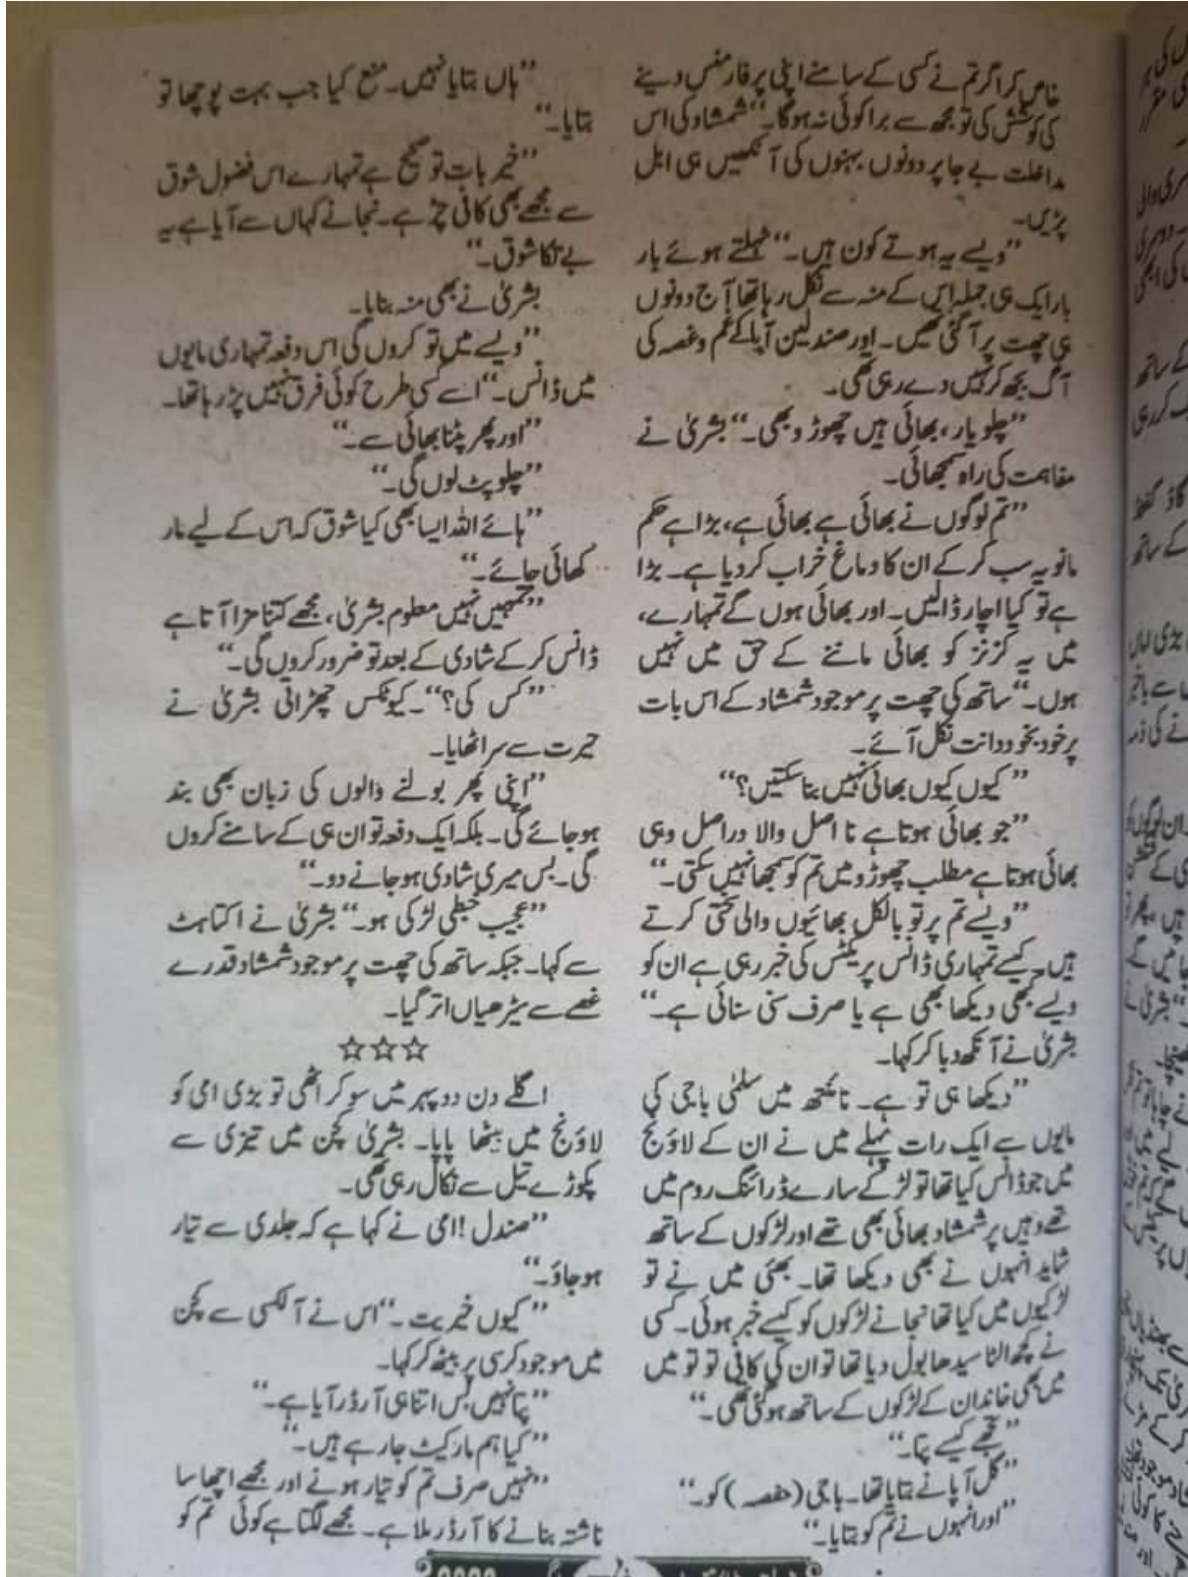 خاص کر اگر تم نے کسی کے سامنے اپنی پرفارمنس دینے
کی کوشش کی تو مجھ سے برا کوئی نہ ہوگا۔“ شمشاد کی اس
مداخلت بے جا پر دونوں بہنوں کی آنکھیں ہی ابل
پڑیں۔
”ویسے یہ ہوتے کون ہیں۔“ ٹہلتے ہوئے بار
بار ایک ہی جملہ اس کے منہ سے نکل رہا تھا آج دونوں
ہی چھت پر آگئی تھیں۔ اور صندلین آپا کے غم و غصہ کی
آگ بجھ کر نہیں دے رہی تھی۔
”چلو یار، بھائی ہیں چھوڑو بھی۔“ بشریٰ نے
مفاہمت کی راہ سمجھائی۔
”تم لوگوں نے بھائی ہے بھائی ہے، بڑا ہے حکم
مانو یہ سب کر کے ان کا دماغ خراب کردیا ہے۔ بڑا
ہے تو کیا اچار ڈالیں۔ اور بھائی ہوں گے تمہارے،
میں یہ کزنز کو بھائی ماننے کے حق میں نہیں
ہوں۔“ ساتھ کی چھت پر موجود شمشاد کے اس بات
پر خود بخود دانت نکل آئے۔
”کیوں کیوں بھائی نہیں بنا سکتیں؟“
”جو بھائی ہوتا ہے نا اصل والا دراصل وہی
بھائی ہوتا ہے مطلب چھوڑو میں تم کو سمجھا نہیں سکتی۔“
”ویسے تم پر تو بالکل بھائیوں والی سختی کرتے
ہیں۔ کیسے تمہاری ڈانس پریکٹس کی خبر رہی ہے ان کو
ویسے کبھی دیکھا بھی ہے یا صرف سنی سنائی ہے۔“
بشریٰ نے آنکھ دبا کر کہا۔
”دیکھا ہی تو ہے۔ نائنتھ میں سلمٰی باجی کی
مایوں سے ایک رات پہلے میں نے ان کے لاؤنج
میں جو ڈانس کیا تھا تو لڑکے سارے ڈرائنگ روم میں
تھے وہیں پر شمشاد بھائی بھی تھے اور لڑکوں کے ساتھ
شاید انہوں نے بھی دیکھا تھا۔ بھئی میں نے تو
لڑکیوں میں کیا تھا نجانے لڑکوں کو کیسے خبر ہوئی۔ کسی
نے کچھ الٹا سیدھا بول دیا تھا تو ان کی کافی تو تو میں
میں بھی خاندان کے لڑکوں کے ساتھ ہوگئی تھی۔“
”تجھے کیسے پتا۔“
”گل آپا نے بتایا تھا۔ باجی (حفصہ) کو۔“
”اور انہوں نے تم کو بتایا۔“
”ہاں بتایا نہیں۔ منع کیا جب بہت پوچھا تو
بتایا۔“
”خیر بات تو صحیح ہے تمہارے اس فضول شوق
سے مجھے بھی کافی چڑ ہے۔ نجانے کہاں سے آیا ہے یہ
بے تکا شوق۔“
بشریٰ نے بھی منہ بنایا۔
”ویسے میں تو کروں گی اس دفعہ تمہاری مایوں
میں ڈانس۔“ اسے کسی طرح کوئی فرق نہیں پڑ رہا تھا۔
”اور پھر پٹنا بھائی سے۔“
”چلو پٹ لوں گی۔“
”ہائے اللہ ایسا بھی کیا شوق کہ اس کے لیے مار
کھائی جائے۔“
”تمہیں نہیں معلوم بشریٰ، مجھے کتنا مزا آتا ہے
ڈانس کر کے شادی کے بعد تو ضرور کروں گی۔“
”کس کی؟“۔ کیوٹکس چھڑاتی بشریٰ نے
حیرت سے سر اٹھایا۔
”اپنی پھر بولنے والوں کی زبان بھی بند
ہوجائے گی۔ بلکہ ایک دفعہ تو ان ہی کے سامنے کروں
گی۔ بس میری شادی ہوجانے دو۔“
”عجیب خبطی لڑکی ہو۔“ بشریٰ نے اکتاہٹ
سے کہا۔ جبکہ ساتھ کی چھت پر موجود شمشاد قدرے
غصے سے سیڑھیاں اتر گیا۔
☆☆☆
اگلے دن دوپہر میں سو کر اٹھی تو بڑی امی کو
لاؤنج میں بیٹھا پایا۔ بشریٰ کچن میں تیزی سے
پکوڑے تیل سے نکال رہی تھی۔
”صندل! امی نے کہا ہے کہ جلدی سے تیار
ہوجاؤ۔“
”کیوں خیریت۔“ اس نے آلکسی سے کچن
میں موجود کرسی پر بیٹھ کر کہا۔
”پتا نہیں بس اتنا ہی آرڈر آیا ہے۔“
”کیا ہم مارکیٹ جا رہے ہیں۔“
”نہیں صرف تم کو تیار ہونے اور مجھے اچھا سا
ناشتہ بنانے کا آرڈر ملا ہے۔ مجھے لگتا ہے کوئی تم کو